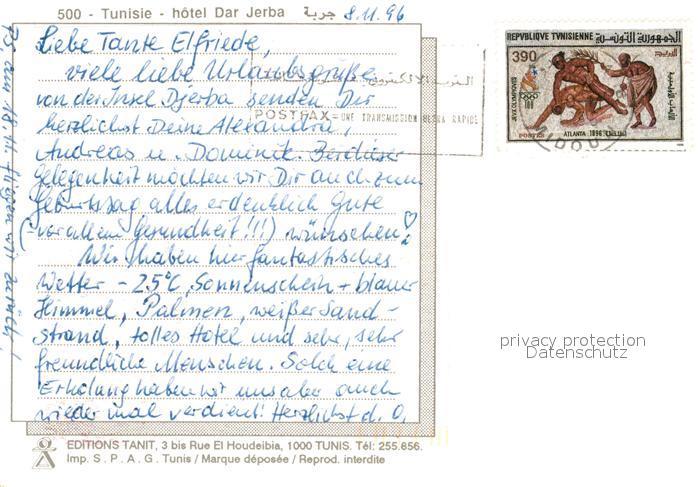 500 - Tunisie - hôtel Dar Jerba جربة 8.11.96
Liebe Tante Elfriede,
viele liebe Urlaubsgrüße
von der Insel Djerba senden Dir
herzlichst Deine Alexandra,
Andreas u. Dominik. Bei dieser
Gelegenheit möchten wir Dir auch zum
Geburtstag alles erdenklich Gute
(- vor allem Gesundheit!!!) wünschen!
Wir haben hier fantastisches
Wetter - 25°C, Sonnenschein + blauer
Himmel, Palmen, weißer Sand-
strand, tolles Hotel und sehr, sehr
freundliche Menschen. Solch eine
Erholung haben wir uns aber auch
wieder mal verdient! Herzlichst d. O.
PS am 18.11. fliegen wir zurück!
POSTFAX - UNE TRANSMISSION ULTRA RAPIDE
REPUBLIQUE TUNISIENNE الجمهورية التونسية
390
JEUX OLYMPIQUES
POSTES
ATLANTA 1996
MIDOU
privacy protection
Datenschutz
EDITIONS TANIT, 3 bis Rue El Houdeibia, 1000 TUNIS. Tél: 255.656.
Imp. S.P.A.G. Tunis / Marque déposée / Reprod. interdite